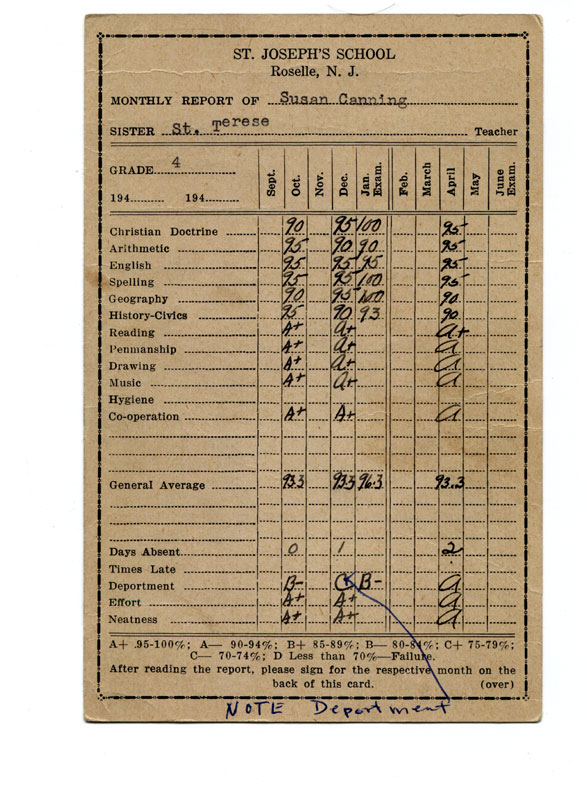 ST. JOSEPH'S SCHOOL
Roselle, N. J.
MONTHLY REPORT OF Susan Canning
SISTER St. Terese Teacher
GRADE 4
194 194
Sept. Oct. Nov. Dec. Jan. Exam. Feb. March April May June Exam.
Christian Doctrine 90 95 100 95
Arithmetic 95 90 90 95
English 95 95 95 95
Spelling 95 95 100 95
Geography 90 95 100 90
History-Civics 95 90 93 90
Reading A+ A+ A+
Penmanship A+ A+ A
Drawing A+ A+ A
Music A+ A+ A
Hygiene
Co-operation A+ A+ A
General Average 93.3 93.3 96.3 93.3
Days Absent 0 1 2
Times Late
Department B- C B- A
Effort A+ A+ A
Neatness A+ A+ A
A+ .95-100%; A— 90-94%; B+ 85-89%; B— 80-84%; C+ 75-79%;
C— 70-74%; D Less than 70%—Failure.
After reading the report, please sign for the respective month on the
back of this card. (over)
NOTE Department